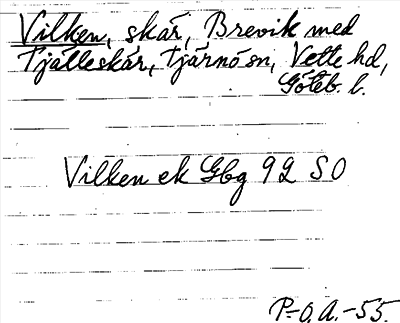 Vilken, skär, Brevik med
Tjälleskär, Tjärnö sn, Vette hd,
Göteb. l.
Vilken ek Gbg 92 SO
P-O.A.-55.